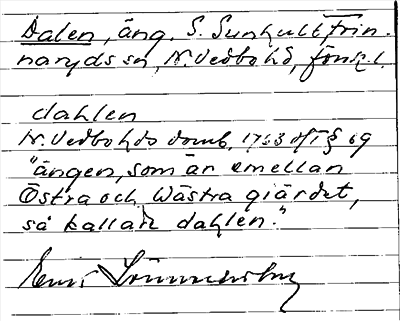 Dalen, äng. S. Sunhult, Frin-
naryds sn, N. Vedbo hd, Jönk. l.
dahlen
N. Vedbo hds domb. 1763 ht § 69
"ängen, som är emellan
Östra och Wästra giärdet,
så kallat dahlen."